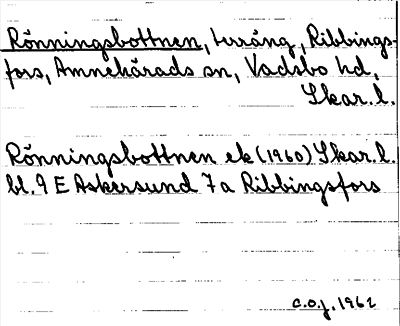 Rönningsbottnen, terräng, Ribbings-
fors, Amnehärads sn, Vadsbo hd,
Skar. l.
Rönningsbottnen ek (1960) Skar. l.
bl. 9 E Askersund 7 a Ribbingsfors
C.O.J. 1962